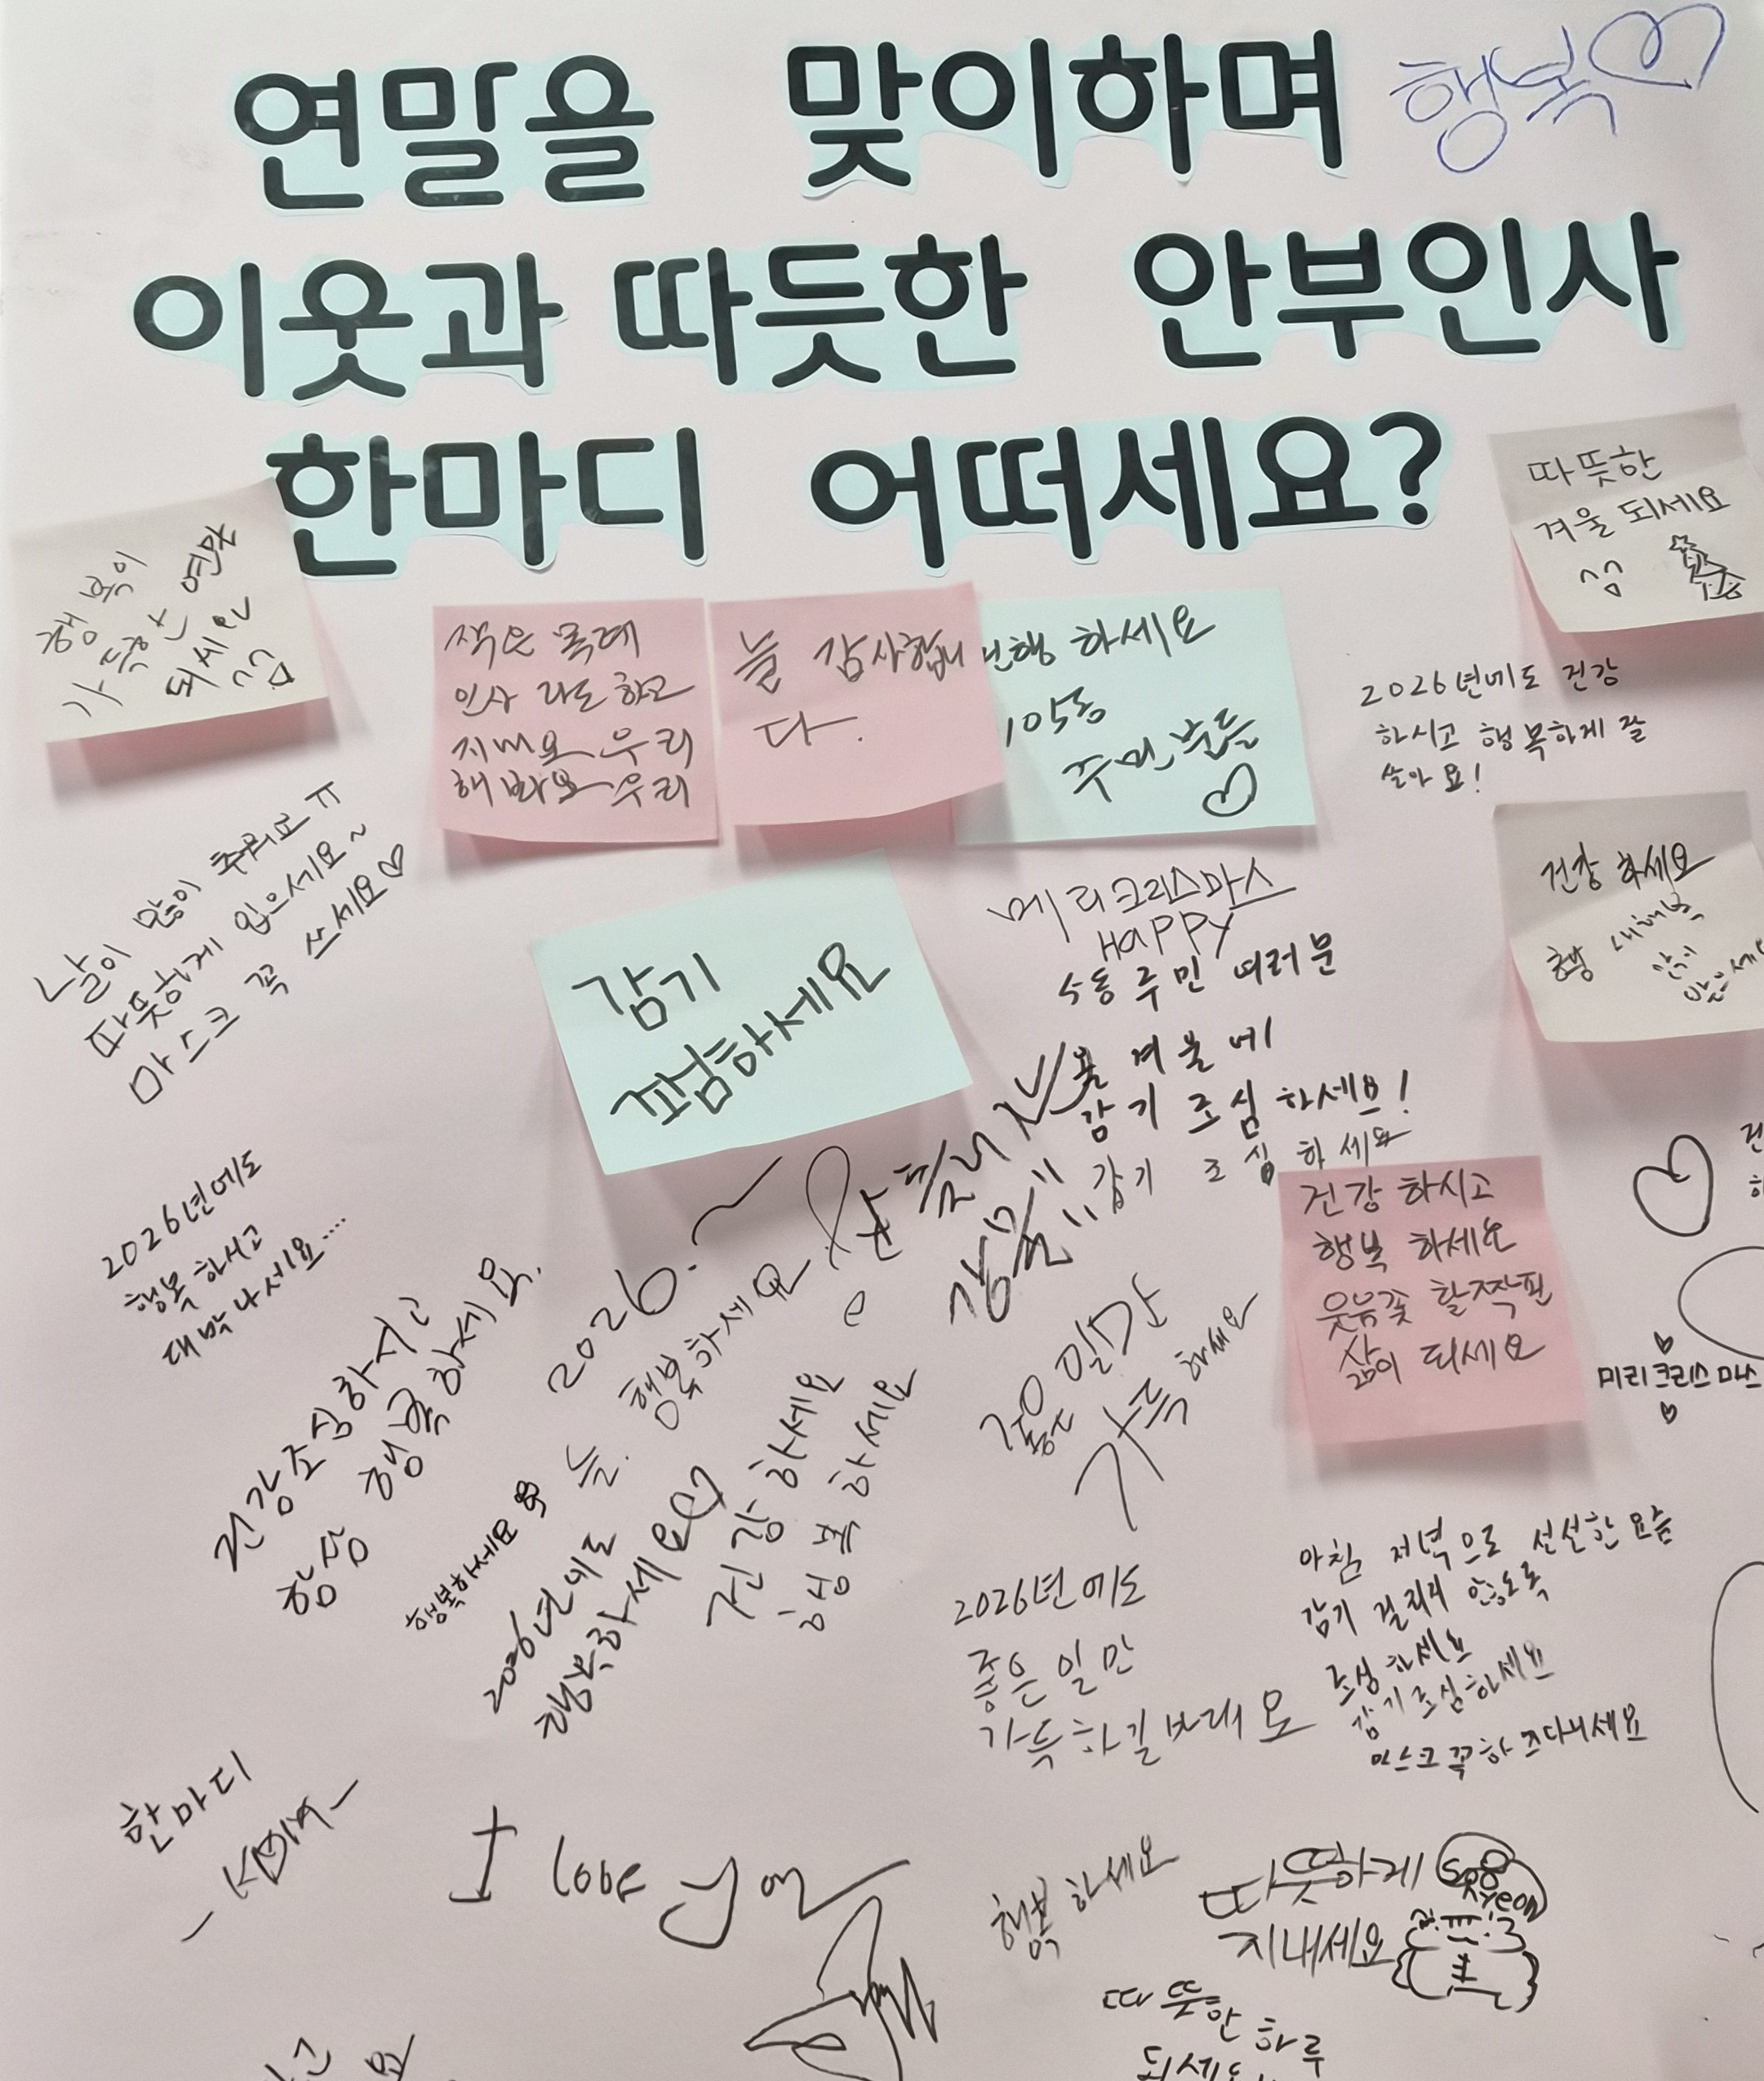 연말을 맞이하며 행복
이웃과 따듯한 안부인사
한마디 어떠세요?
행복이
가득한 연말
되세요
따뜻한
겨울 되세요
작은 목례
인사 라도 하고
지내요 우리
해봐요 우리
늘 감사합니
다.
하세요
105동
주민분들
2026년에도 건강
하시고 행복하게 잘
살아요!
날이 많이 추워요 ㅠ
따뜻하게 입으세요~
마스크 꼭 쓰세요
감기
조심하세요
메리크리스마스
HAPPY
5동 주민 여러분
추운 겨울에
감기 조심 하세요!
감기 조심 하세요
건강 하세요
새해복
많이
받으세
건강 하시고
행복 하세요
웃음꽃 활짝핀
삶이 되세요
미리크리스마스
2026년에도
행복 하시고
대박나세요....
건강조심하시고
항상 행복하세요.
2026.~
늘. 행복하세요
행복하세요
2026년에도
행복하세요
건강 하세요
행복 하세요
좋은 일만
가득 하세요
2026년에도
좋은일만
가득하길 바래요
아침 저녁으로 선선한 요즘
감기 걸리지 않도록
조심하세요
감기조심하세요
마스크꼭하고다니세요
한마디
I love you
행복 하세요
따뜻하게
지내세요
따뜻한 하루